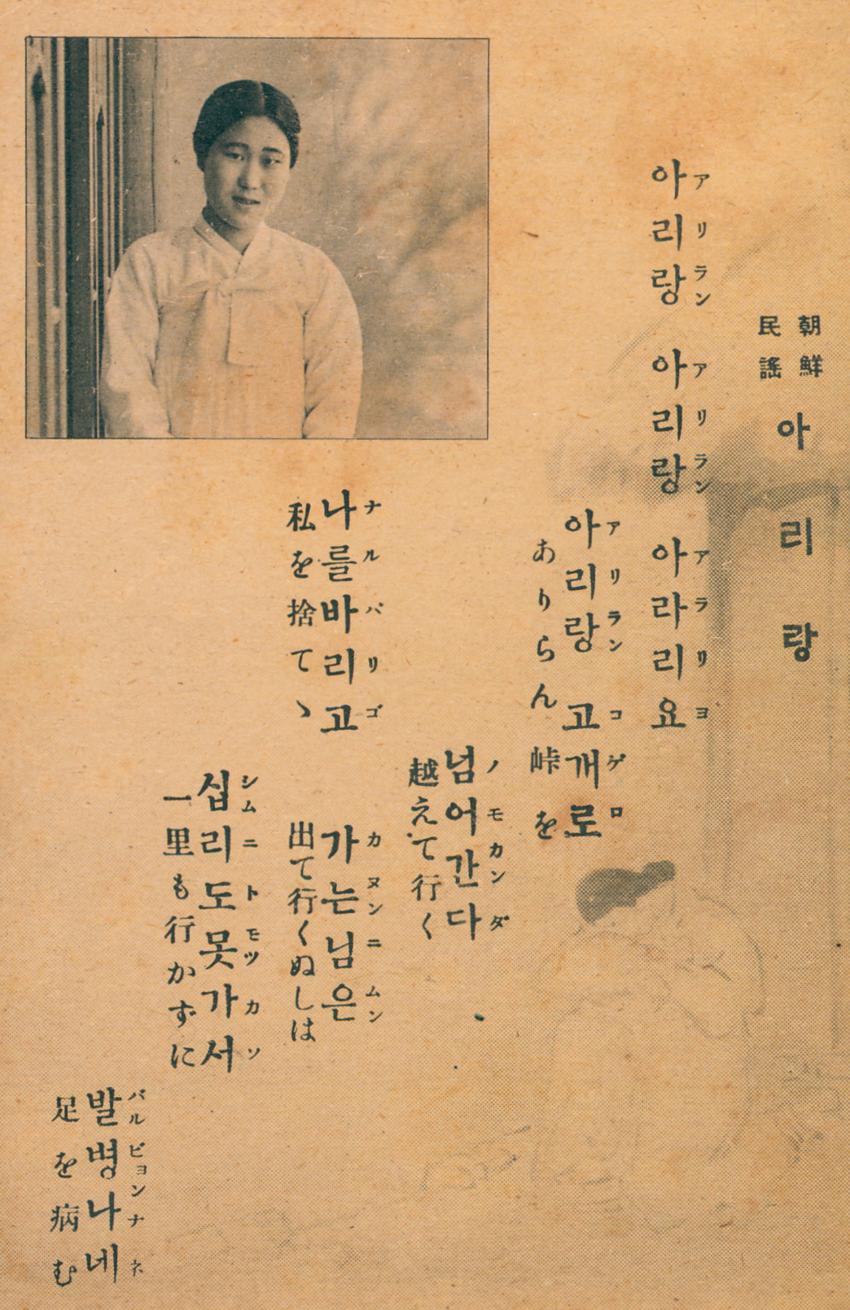 朝鮮
民謠
아리랑
アリラン アリラン アラリヨ
아리랑 아리랑 아라리요
アリラン コゲロ
아리랑 고개로
ありらん峠を
ノモカンダ
넘어간다
越えて行く
ナルバリゴ
나를바리고
私を捨てヽ
カヌンニムン
가는님은
出て行くぬしは
シムニトモツカソ
십리도못가서
一里も行かずに
バルビョンナネ
발병나네
足を病む